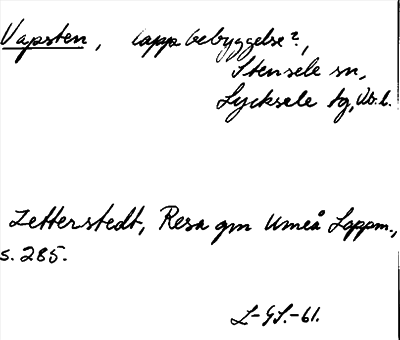 Vapsten, lappbebyggelse?,
Stensele sn,
Lycksele tg, Vb. l.
Zetterstedt, Resa gm Umeå Lappm.,
s. 285.
L-GS.-61.